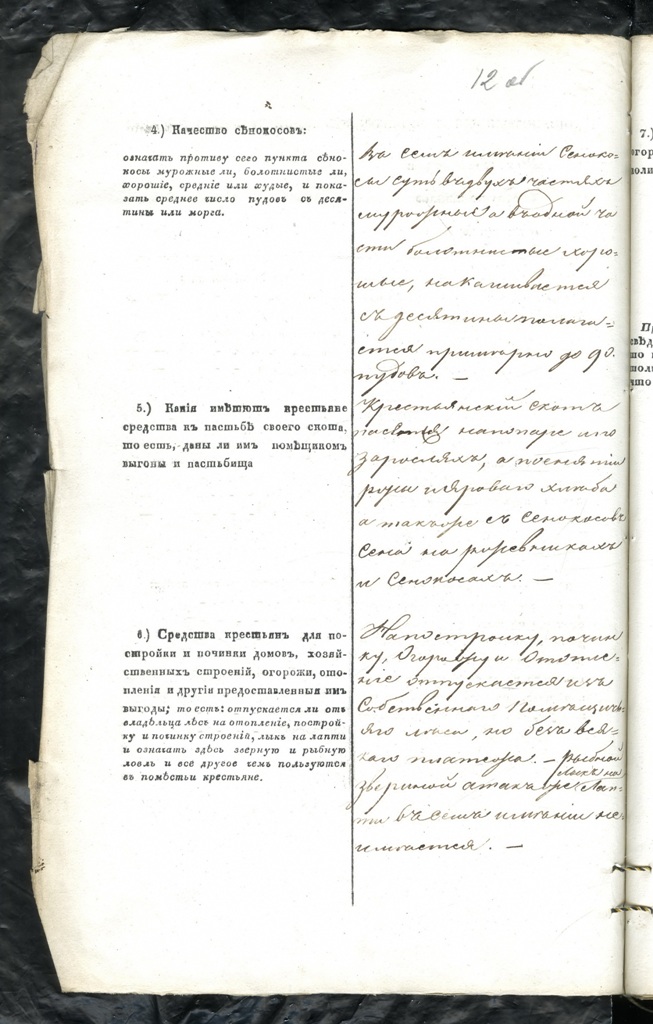 12 об
4.) Качество сѣнокосовъ:
означать противу сего пункта сѣно-
косы мурожные ли, болотнистые ли,
хорошіе, средніе или худые, и пока-
зать среднее число пудовъ съ деся-
тины или морга.
Въ семъ имѣніи Сеноко-
сы суть въ двухъ частяхъ
мурожные а въ одной ча
сти болотнистые хоро-
шые, накашивается
съ десятины полага-
ется примѣрно до 90.
пудовъ. —
5.) Какія имѣютъ крестьяне
средства къ пастьбѣ своего скота,
то есть, даны ли имъ помѣщикомъ
выгоны и пастьбища
Крестьянскій скотъ
пасется на попаре и по
заросляхъ, а по снятіи
ржи и яроваго хлѣба
а также съ сенокосовъ
сена на ржевникахъ
и Сенокосахъ. —
6.) Средства крестьянъ для по-
стройки и починки домовъ, хозяй-
ственныхъ строеній, огорожи, ото-
пленія и другія предоставленныя имъ
выгоды; то есть: отпускается ли отъ
владѣльца лѣсъ на отопленіе, построй-
ку и починку строеній, лыкъ на лапти
и означать здѣсь зверную и рыбную
ловль и все другое чемъ пользуются
въ помѣстьи крестьяне.
На постройку, почин
ку, Огорожу и Отопле-
ніе отпускается изъ
Собственнаго Помѣщичь-
яго лѣса, но безъ вся-
каго платежа. — рыбной
звериной а также лыкъ на Лап-
ти въ семъ имѣніи не
имѣется. —
7.)